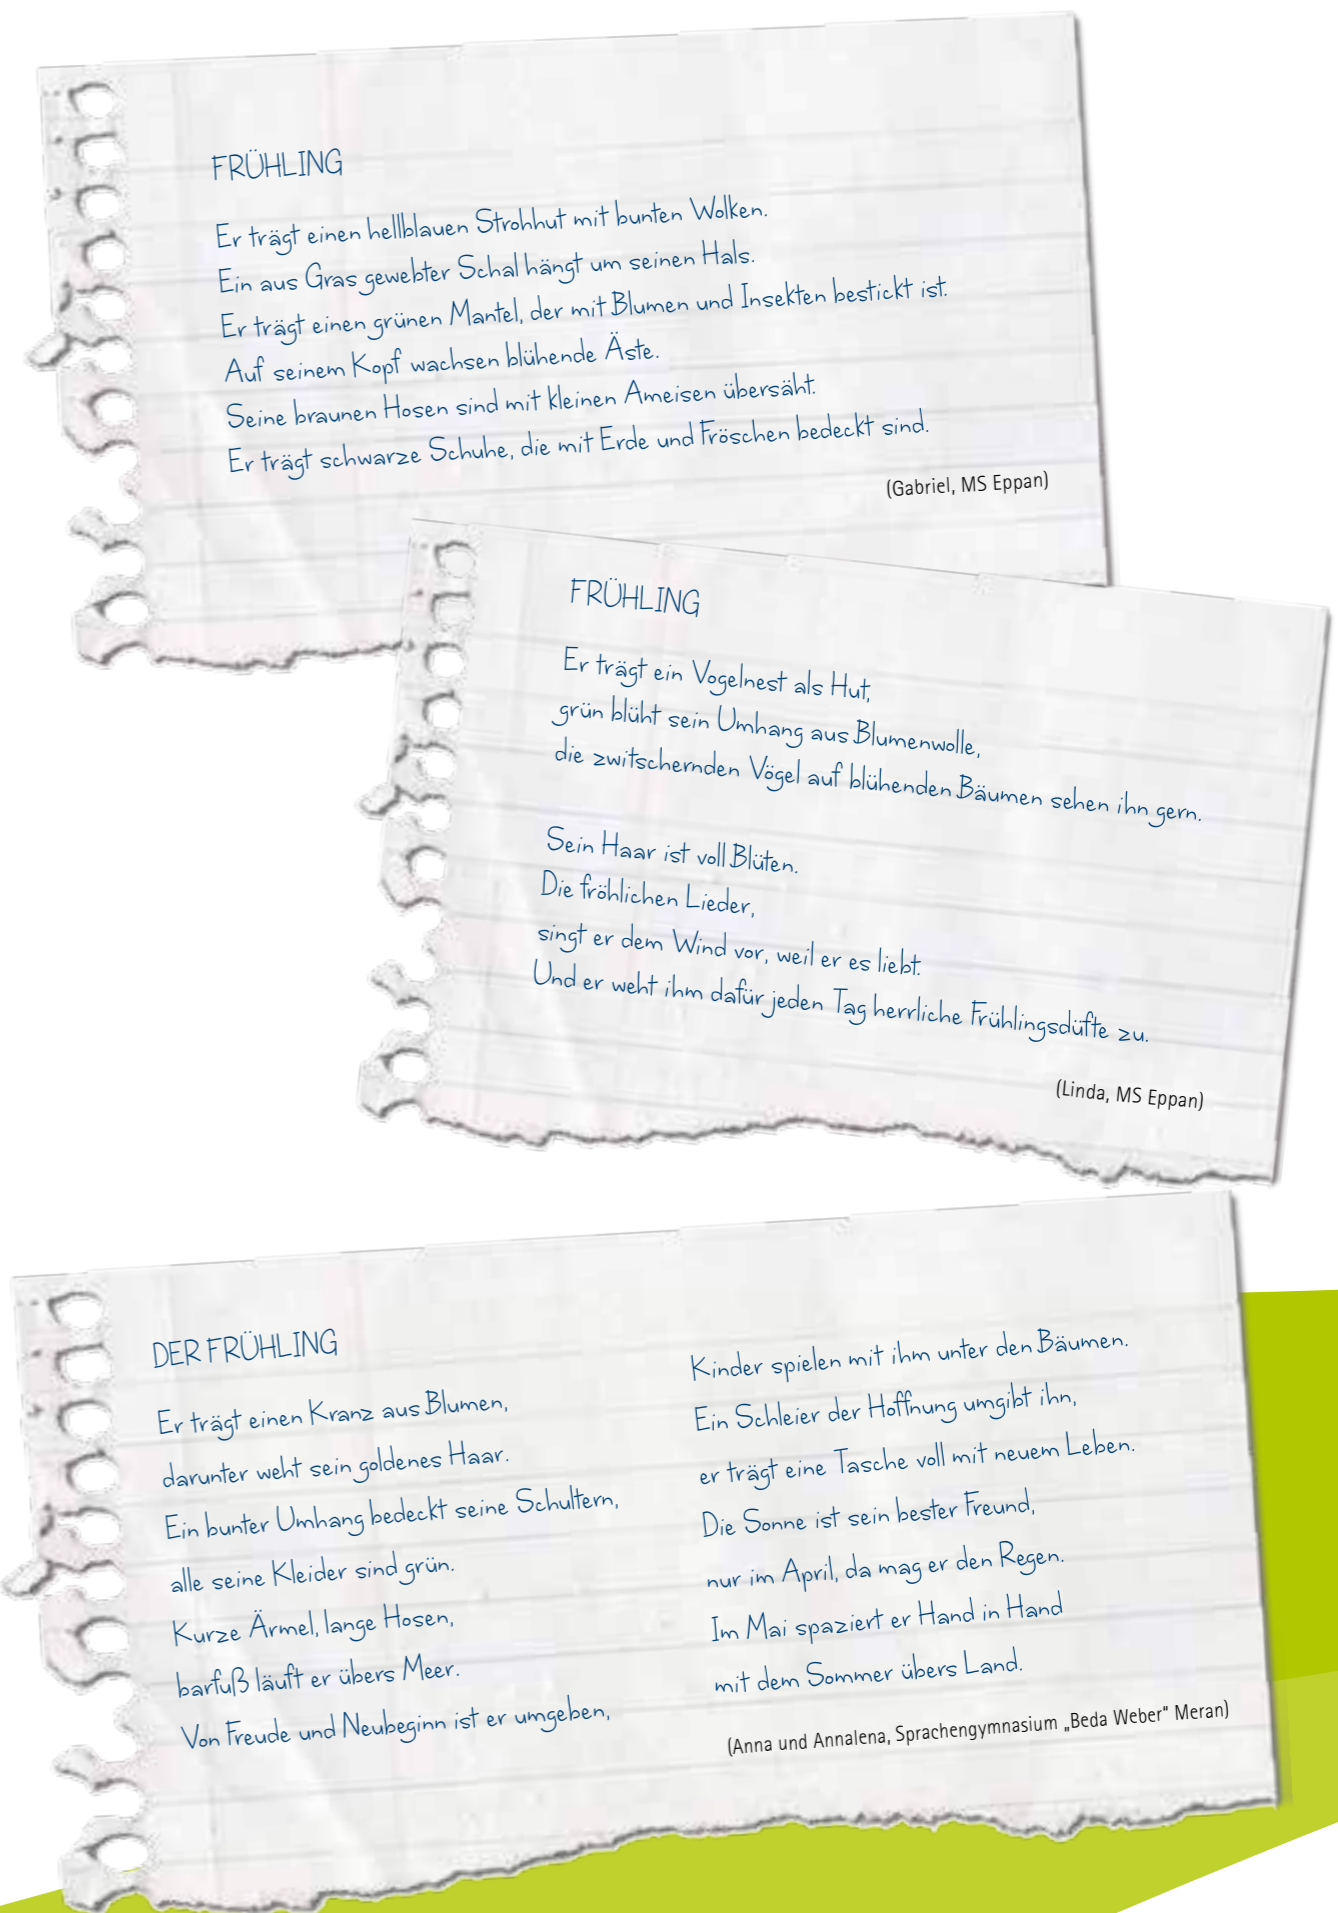 FRÜHLING
Er trägt einen hellblauen Strohhut mit bunten Wolken.
Ein aus Gras gewebter Schal hängt um seinen Hals.
Er trägt einen grünen Mantel, der mit Blumen und Insekten bestickt ist.
Auf seinem Kopf wachsen blühende Äste.
Seine braunen Hosen sind mit kleinen Ameisen übersäht.
Er trägt schwarze Schuhe, die mit Erde und Fröschen bedeckt sind.
(Gabriel, MS Eppan)
FRÜHLING
Er trägt ein Vogelnest als Hut,
grün blüht sein Umhang aus Blumenwolle,
die zwitschernden Vögel auf blühenden Bäumen sehen ihn gern.
Sein Haar ist voll Blüten.
Die fröhlichen Lieder,
singt er dem Wind vor, weil er es liebt.
Und er weht ihm dafür jeden Tag herrliche Frühlingsdüfte zu.
(Linda, MS Eppan)
DER FRÜHLING
Er trägt einen Kranz aus Blumen,
darunter weht sein goldenes Haar.
Ein bunter Umhang bedeckt seine Schultern,
alle seine Kleider sind grün.
Kurze Ärmel, lange Hosen,
barfuß läuft er übers Meer.
Von Freude und Neubeginn ist er umgeben,
Kinder spielen mit ihm unter den Bäumen.
Ein Schleier der Hoffnung umgibt ihn,
er trägt eine Tasche voll mit neuem Leben.
Die Sonne ist sein bester Freund,
nur im April, da mag er den Regen.
Im Mai spaziert er Hand in Hand
mit dem Sommer übers Land.
(Anna und Annalena, Sprachengymnasium „Beda Weber" Meran)